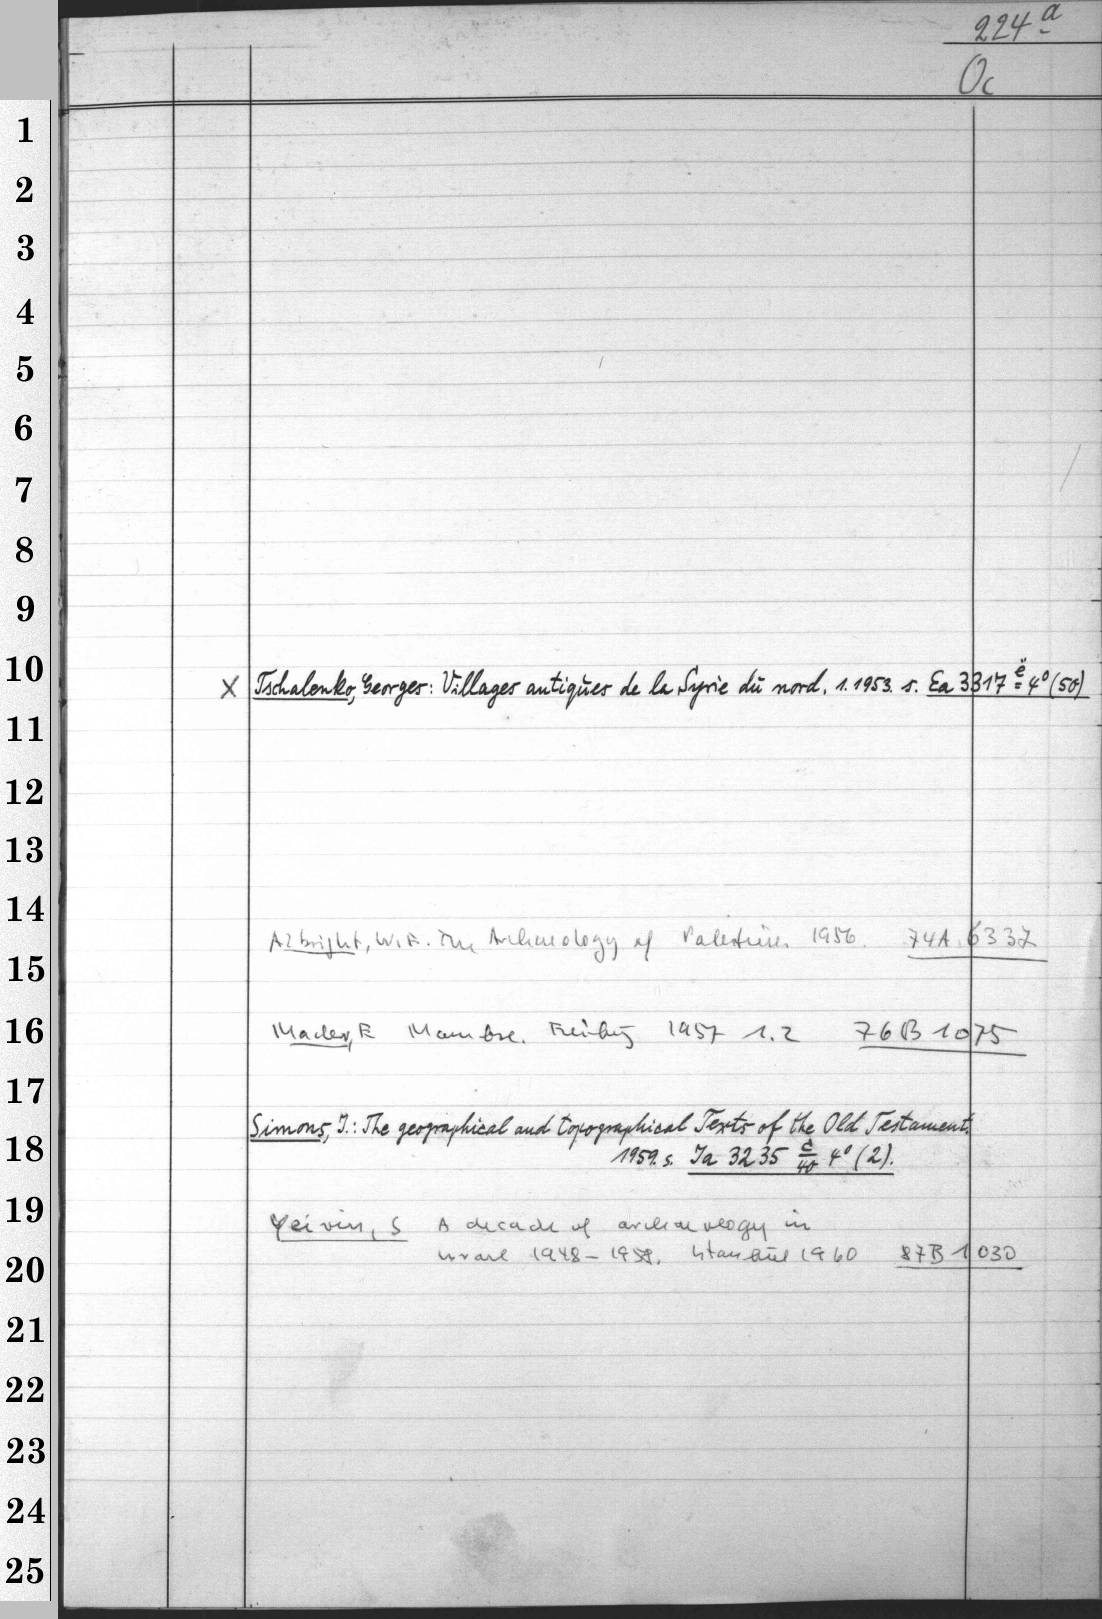 224 a
Oc
1
2
3
4
5
6
7
8
9
10
X Tschalenko, Georges: Villages antiques de la Syrie du nord. 1.1953. s. Ea 3317 ë 4° (50)
11
12
13
14
Albright, W.F. The Archaeology of Palestine. 1956. 74A 6337
15
16
Mader, E Mambre. Freiburg 1957 1.2 76B 1075
17
Simons, J.: The geographical and topographical Texts of the Old Testament.
18
1959. s. Ja 3235 c/40 4° (2).
19
Yeivin, S A decade of archaeology in
Israel 1948-1958. Istanbul 1960 87B 1030
20
21
22
23
24
25